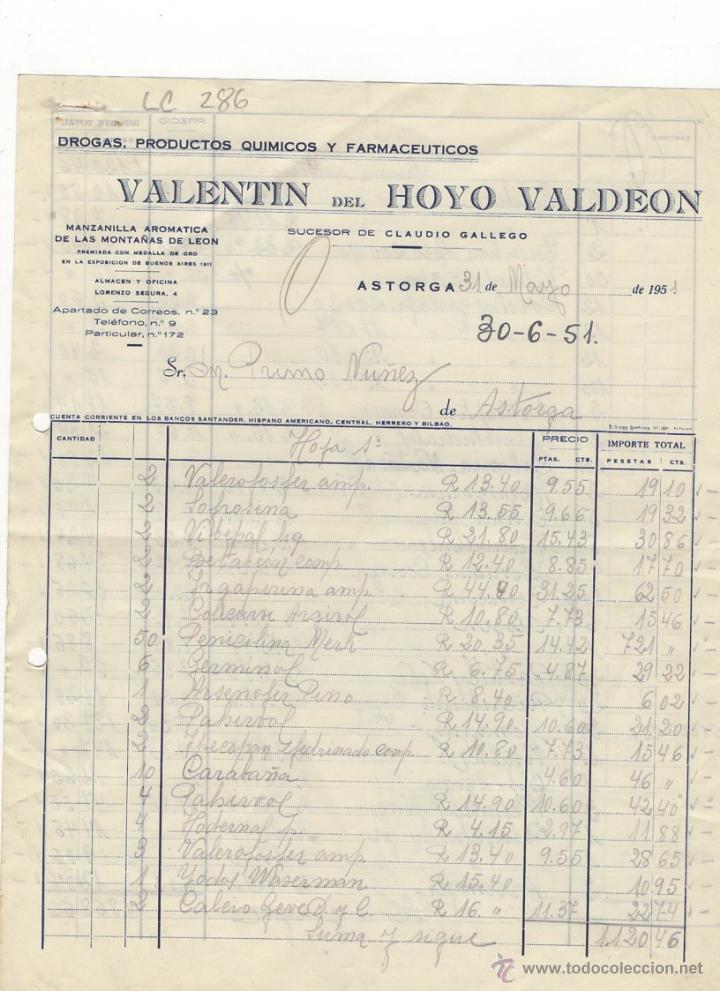 LC 286
DROGAS, PRODUCTOS QUIMICOS Y FARMACEUTICOS
VALENTIN DEL HOYO VALDEON
MANZANILLA AROMATICA
DE LAS MONTAÑAS DE LEON
PREMIADA CON MEDALLA DE ORO
EN LA EXPOSICION DE BUENOS AIRES 1911
ALMACEN Y OFICINA
LORENZO SEGURA, 4
Apartado de Correos, n.º 23
Teléfono, n.º 9
Particular, n.º 172
SUCESOR DE CLAUDIO GALLEGO
ASTORGA 31 de Mayo de 1951
30-6-51.
Sr. Dn. Primo Nuñez
de Astorga
CUENTA CORRIENTE EN LOS BANCOS SANTANDER, HISPANO AMERICANO, CENTRAL, HERRERO Y BILBAO.
CANTIDAD PRECIO IMPORTE TOTAL
PTAS. CTS. PESETAS CTS.
Hoja 1ª
2 Valerofosfer amp. R 13.40 9.55 19 10
2 R 13.55 9.66 19 32
2 R 21.80 15.43 30 86
2 comp R 12.40 8.85 17 70
2 Irgapirina amp. R 44.40 31.25 62 50
2 Argirol R 10.80 7.73 15 46
50 Penicilina Merk R 20.35 14.42 721 "
6 Germinol R 6.75 4.87 29 22
1 Arsenofer Pino R 8.40 6 02
2 Pahirvol R 14.90 10.60 21 20
2 Efedrinado comp. R 10.80 7.73 15 46
10 Carabaña 4.60 46 "
4 Pahirvol R 14.90 10.60 42 40
4 R 4.15 2.97 11 88
3 Valerofosfer amp R 13.40 9.55 28 65
1 Yodos Waserman R 15.40 10 95
2 Geve D. y C. R 16. " 11.37 22 74
Suma y sigue 1.120 46
© www.todocoleccion.net